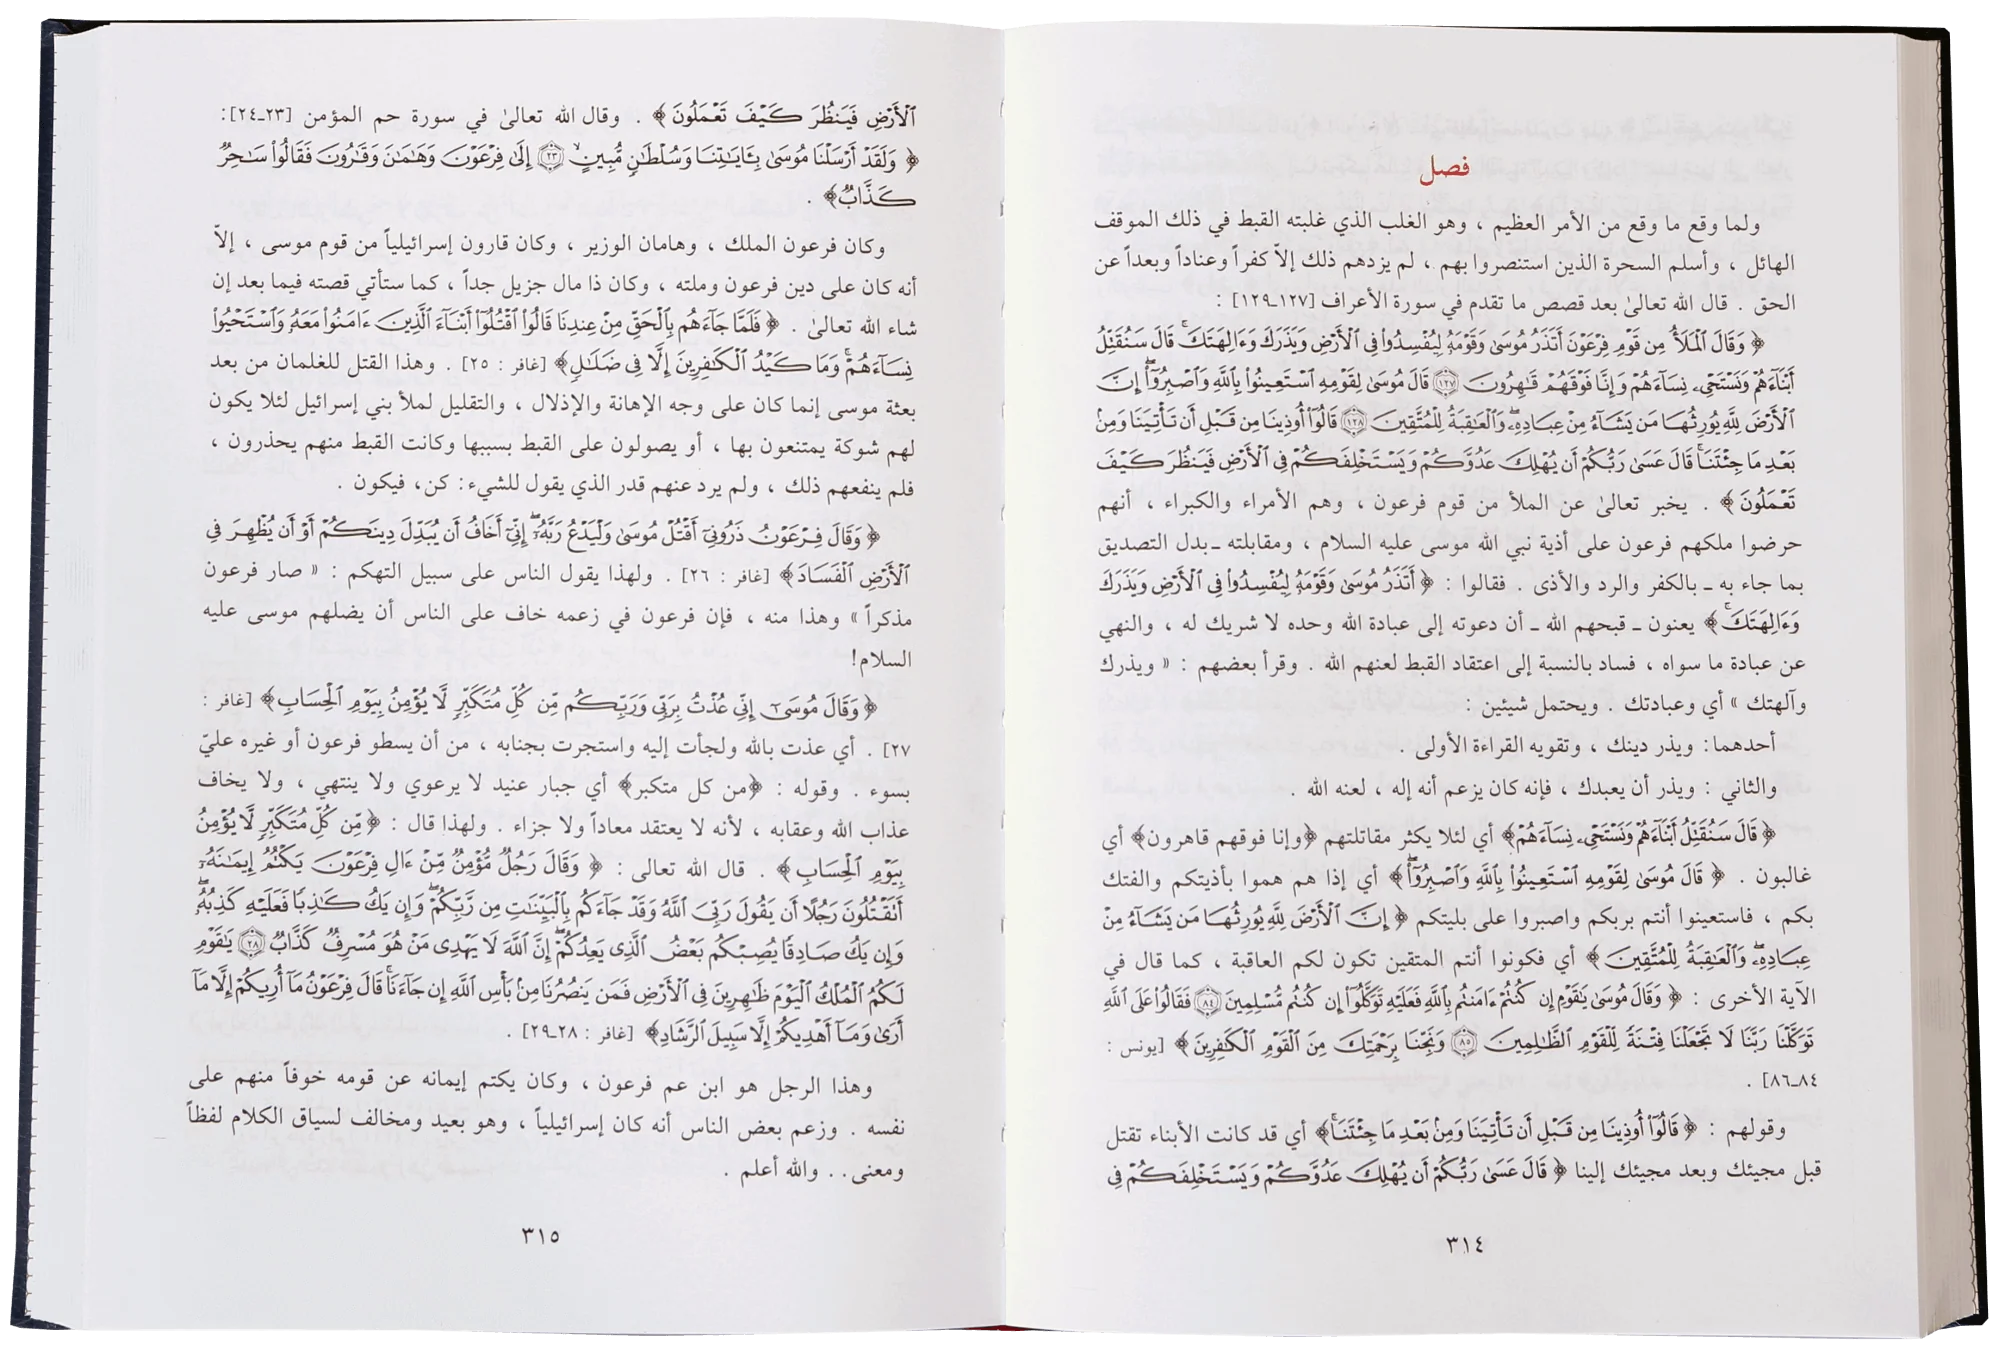 فصل
ولما وقع ما وقع من الأمر العظيم ، وهو الغلب الذي غلبته القبط في ذلك الموقف
الهائل ، وأسلم السحرة الذين استنصروا بهم ، لم يزدهم ذلك إلاّ كفراً وعناداً وبعداً عن
الحق . قال الله تعالىٰ بعد قصص ما تقدم في سورة الأعراف [١٢٧ـ١٢٩] :
﴿ وَقَالَ ٱلْمَلَأُ مِن قَوْمِ فِرْعَوْنَ أَتَذَرُ مُوسَىٰ وَقَوْمَهُۥ لِيُفْسِدُوا۟ فِى ٱلْأَرْضِ وَيَذَرَكَ وَءَالِهَتَكَ ۚ قَالَ سَنُقَتِّلُ
أَبْنَآءَهُمْ وَنَسْتَحْىِۦ نِسَآءَهُمْ وَإِنَّا فَوْقَهُمْ قَٰهِرُونَ ١٢٧ قَالَ مُوسَىٰ لِقَوْمِهِ ٱسْتَعِينُوا۟ بِٱللَّهِ وَٱصْبِرُوٓا۟ ۖ إِنَّ
ٱلْأَرْضَ لِلَّهِ يُورِثُهَا مَن يَشَآءُ مِنْ عِبَادِهِۦ ۖ وَٱلْعَٰقِبَةُ لِلْمُتَّقِينَ ١٢٨ قَالُوٓا۟ أُوذِينَا مِن قَبْلِ أَن تَأْتِيَنَا وَمِنۢ
بَعْدِ مَا جِئْتَنَا ۚ قَالَ عَسَىٰ رَبُّكُمْ أَن يُهْلِكَ عَدُوَّكُمْ وَيَسْتَخْلِفَكُمْ فِى ٱلْأَرْضِ فَيَنظُرَ كَيْفَ
تَعْمَلُونَ ﴾ . يخبر تعالىٰ عن الملأ من قوم فرعون ، وهم الأمراء والكبراء ، أنهم
حرضوا ملكهم فرعون على أذية نبي الله موسى عليه السلام ، ومقابلته ـ بدل التصديق
بما جاء به ـ بالكفر والرد والأذى . فقالوا : ﴿ أَتَذَرُ مُوسَىٰ وَقَوْمَهُۥ لِيُفْسِدُوا۟ فِى ٱلْأَرْضِ وَيَذَرَكَ
وَءَالِهَتَكَ ۚ ﴾ يعنون ـ قبحهم الله ـ أن دعوته إلى عبادة الله وحده لا شريك له ، والنهي
عن عبادة ما سواه ، فساد بالنسبة إلى اعتقاد القبط لعنهم الله . وقرأ بعضهم : « ويذرك
وآلهتك » أي وعبادتك . ويحتمل شيئين :
أحدهما: ويذر دينك ، وتقويه القراءة الأولى .
والثاني : ويذر أن يعبدك ، فإنه كان يزعم أنه إله ، لعنه الله .
﴿ قَالَ سَنُقَتِّلُ أَبْنَآءَهُمْ وَنَسْتَحْىِۦ نِسَآءَهُمْ ﴾ أي لئلا يكثر مقاتلتهم ﴿وإنا فوقهم قاهرون﴾ أي
غالبون . ﴿ قَالَ مُوسَىٰ لِقَوْمِهِ ٱسْتَعِينُوا۟ بِٱللَّهِ وَٱصْبِرُوٓا۟ ۖ ﴾ أي إذا هم هموا بأذيتكم والفتك
بكم ، فاستعينوا أنتم بربكم واصبروا على بليتكم ﴿ إِنَّ ٱلْأَرْضَ لِلَّهِ يُورِثُهَا مَن يَشَآءُ مِنْ
عِبَادِهِۦ ۖ وَٱلْعَٰقِبَةُ لِلْمُتَّقِينَ ﴾ أي فكونوا أنتم المتقين تكون لكم العاقبة ، كما قال في
الآية الأخرى : ﴿ وَقَالَ مُوسَىٰ يَٰقَوْمِ إِن كُنتُمْ ءَامَنتُم بِٱللَّهِ فَعَلَيْهِ تَوَكَّلُوٓا۟ إِن كُنتُم مُّسْلِمِينَ ٨٤ فَقَالُوا۟ عَلَى ٱللَّهِ
تَوَكَّلْنَا رَبَّنَا لَا تَجْعَلْنَا فِتْنَةً لِّلْقَوْمِ ٱلظَّٰلِمِينَ ٨٥ وَنَجِّنَا بِرَحْمَتِكَ مِنَ ٱلْقَوْمِ ٱلْكَٰفِرِينَ ﴾ [يونس :
٨٤ـ٨٦] .
وقولهم : ﴿ قَالُوٓا۟ أُوذِينَا مِن قَبْلِ أَن تَأْتِيَنَا وَمِنۢ بَعْدِ مَا جِئْتَنَا ۚ ﴾ أي قد كانت الأبناء تقتل
قبل مجيئك وبعد مجيئك إلينا ﴿ قَالَ عَسَىٰ رَبُّكُمْ أَن يُهْلِكَ عَدُوَّكُمْ وَيَسْتَخْلِفَكُمْ فِى
٣١٤
ٱلْأَرْضِ فَيَنظُرَ كَيْفَ تَعْمَلُونَ ﴾ . وقال الله تعالىٰ في سورة حم المؤمن [٢٣ـ٢٤]:
﴿ وَلَقَدْ أَرْسَلْنَا مُوسَىٰ بِـَٔايَٰتِنَا وَسُلْطَٰنٍ مُّبِينٍ ٢٣ إِلَىٰ فِرْعَوْنَ وَهَٰمَٰنَ وَقَٰرُونَ فَقَالُوا۟ سَٰحِرٌ
كَذَّابٌ﴾ .
وكان فرعون الملك ، وهامان الوزير ، وكان قارون إسرائيلياً من قوم موسى ، إلاّ
أنه كان على دين فرعون وملته ، وكان ذا مال جزيل جداً ، كما ستأتي قصته فيما بعد إن
شاء الله تعالىٰ . ﴿ فَلَمَّا جَآءَهُم بِٱلْحَقِّ مِنْ عِندِنَا قَالُوا۟ ٱقْتُلُوٓا۟ أَبْنَآءَ ٱلَّذِينَ ءَامَنُوا۟ مَعَهُۥ وَٱسْتَحْيُوا۟
نِسَآءَهُمْ ۚ وَمَا كَيْدُ ٱلْكَٰفِرِينَ إِلَّا فِى ضَلَٰلٍ﴾ [غافر : ٢٥] . وهذا القتل للغلمان من بعد
بعثة موسى إنما كان على وجه الإهانة والإذلال ، والتقليل لملأ بني إسرائيل لئلا يكون
لهم شوكة يمتنعون بها ، أو يصولون على القبط بسببها وكانت القبط منهم يحذرون ،
فلم ينفعهم ذلك ، ولم يرد عنهم قدر الذي يقول للشيء: كن، فيكون .
﴿ وَقَالَ فِرْعَوْنُ ذَرُونِىٓ أَقْتُلْ مُوسَىٰ وَلْيَدْعُ رَبَّهُۥٓ ۖ إِنِّىٓ أَخَافُ أَن يُبَدِّلَ دِينَكُمْ أَوْ أَن يُظْهِرَ فِى
ٱلْأَرْضِ ٱلْفَسَادَ﴾ [غافر : ٢٦] . ولهذا يقول الناس على سبيل التهكم : « صار فرعون
مذكراً » وهذا منه ، فإن فرعون في زعمه خاف على الناس أن يضلهم موسى عليه
السلام!
﴿ وَقَالَ مُوسَىٰٓ إِنِّى عُذْتُ بِرَبِّى وَرَبِّكُم مِّن كُلِّ مُتَكَبِّرٍ لَّا يُؤْمِنُ بِيَوْمِ ٱلْحِسَابِ﴾ [غافر :
٢٧] . أي عذت بالله ولجأت إليه واستجرت بجنابه ، من أن يسطو فرعون أو غيره عليّ
بسوء . وقوله : ﴿من كل متكبر﴾ أي جبار عنيد لا يرعوي ولا ينتهي ، ولا يخاف
عذاب الله وعقابه ، لأنه لا يعتقد معاداً ولا جزاء . ولهذا قال : ﴿ مِّن كُلِّ مُتَكَبِّرٍ لَّا يُؤْمِنُ
بِيَوْمِ ٱلْحِسَابِ﴾ . قال الله تعالى : ﴿ وَقَالَ رَجُلٌ مُّؤْمِنٌ مِّنْ ءَالِ فِرْعَوْنَ يَكْتُمُ إِيمَٰنَهُۥٓ
أَتَقْتُلُونَ رَجُلًا أَن يَقُولَ رَبِّىَ ٱللَّهُ وَقَدْ جَآءَكُم بِٱلْبَيِّنَٰتِ مِن رَّبِّكُمْ ۖ وَإِن يَكُ كَٰذِبًا فَعَلَيْهِ كَذِبُهُۥ ۖ
وَإِن يَكُ صَادِقًا يُصِبْكُم بَعْضُ ٱلَّذِى يَعِدُكُمْ ۖ إِنَّ ٱللَّهَ لَا يَهْدِى مَنْ هُوَ مُسْرِفٌ كَذَّابٌ ٢٨ يَٰقَوْمِ
لَكُمُ ٱلْمُلْكُ ٱلْيَوْمَ ظَٰهِرِينَ فِى ٱلْأَرْضِ فَمَن يَنصُرُنَا مِنۢ بَأْسِ ٱللَّهِ إِن جَآءَنَا ۚ قَالَ فِرْعَوْنُ مَآ أُرِيكُمْ إِلَّا مَآ
أَرَىٰ وَمَآ أَهْدِيكُمْ إِلَّا سَبِيلَ ٱلرَّشَادِ﴾ [غافر : ٢٨ـ٢٩] .
وهذا الرجل هو ابن عم فرعون ، وكان يكتم إيمانه عن قومه خوفاً منهم على
نفسه . وزعم بعض الناس أنه كان إسرائيلياً ، وهو بعيد ومخالف لسياق الكلام لفظاً
ومعنى.. والله أعلم .
٣١٥